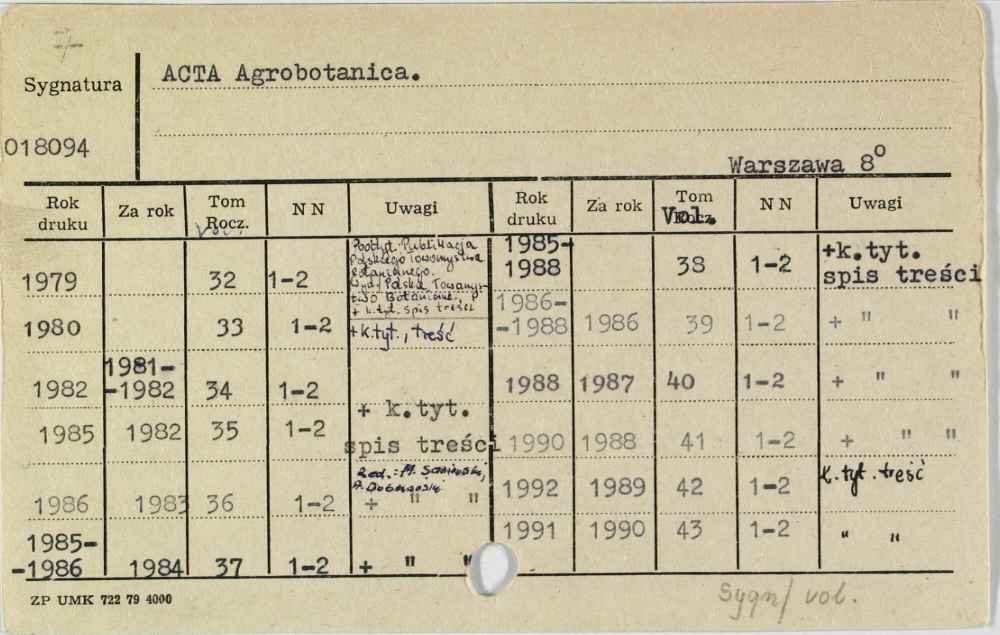 Sygnatura
ACTA Agrobotanica.
018094
Warszawa 8°
Rok druku Za rok Tom Rocz. NN Uwagi Rok druku Za rok Tom Vol. NN Uwagi
1979 32 1-2 Podtyt. Publikacja
Polskiego Towarzystwa
Botanicznego.
Wyd. Polskie Towarzys-
two Botaniczne.
+ k.tyt. spis treści
1985-1988 38 1-2 +k.tyt. spis treści
1980 33 1-2 +k.tyt., treść
1986--1988 1986 39 1-2 + " "
1982 1981--1982 34 1-2
1988 1987 40 1-2 + " "
1985 1982 35 1-2 + k.tyt. spis treści
1990 1988 41 1-2 + " "
Red.: M.
1986 1983 36 1-2 + " "
1992 1989 42 1-2 k.tyt. treść
1985--1986 1984 37 1-2 + " "
1991 1990 43 1-2 " "
ZP UMK 722 79 4000
Sygn/ vol.